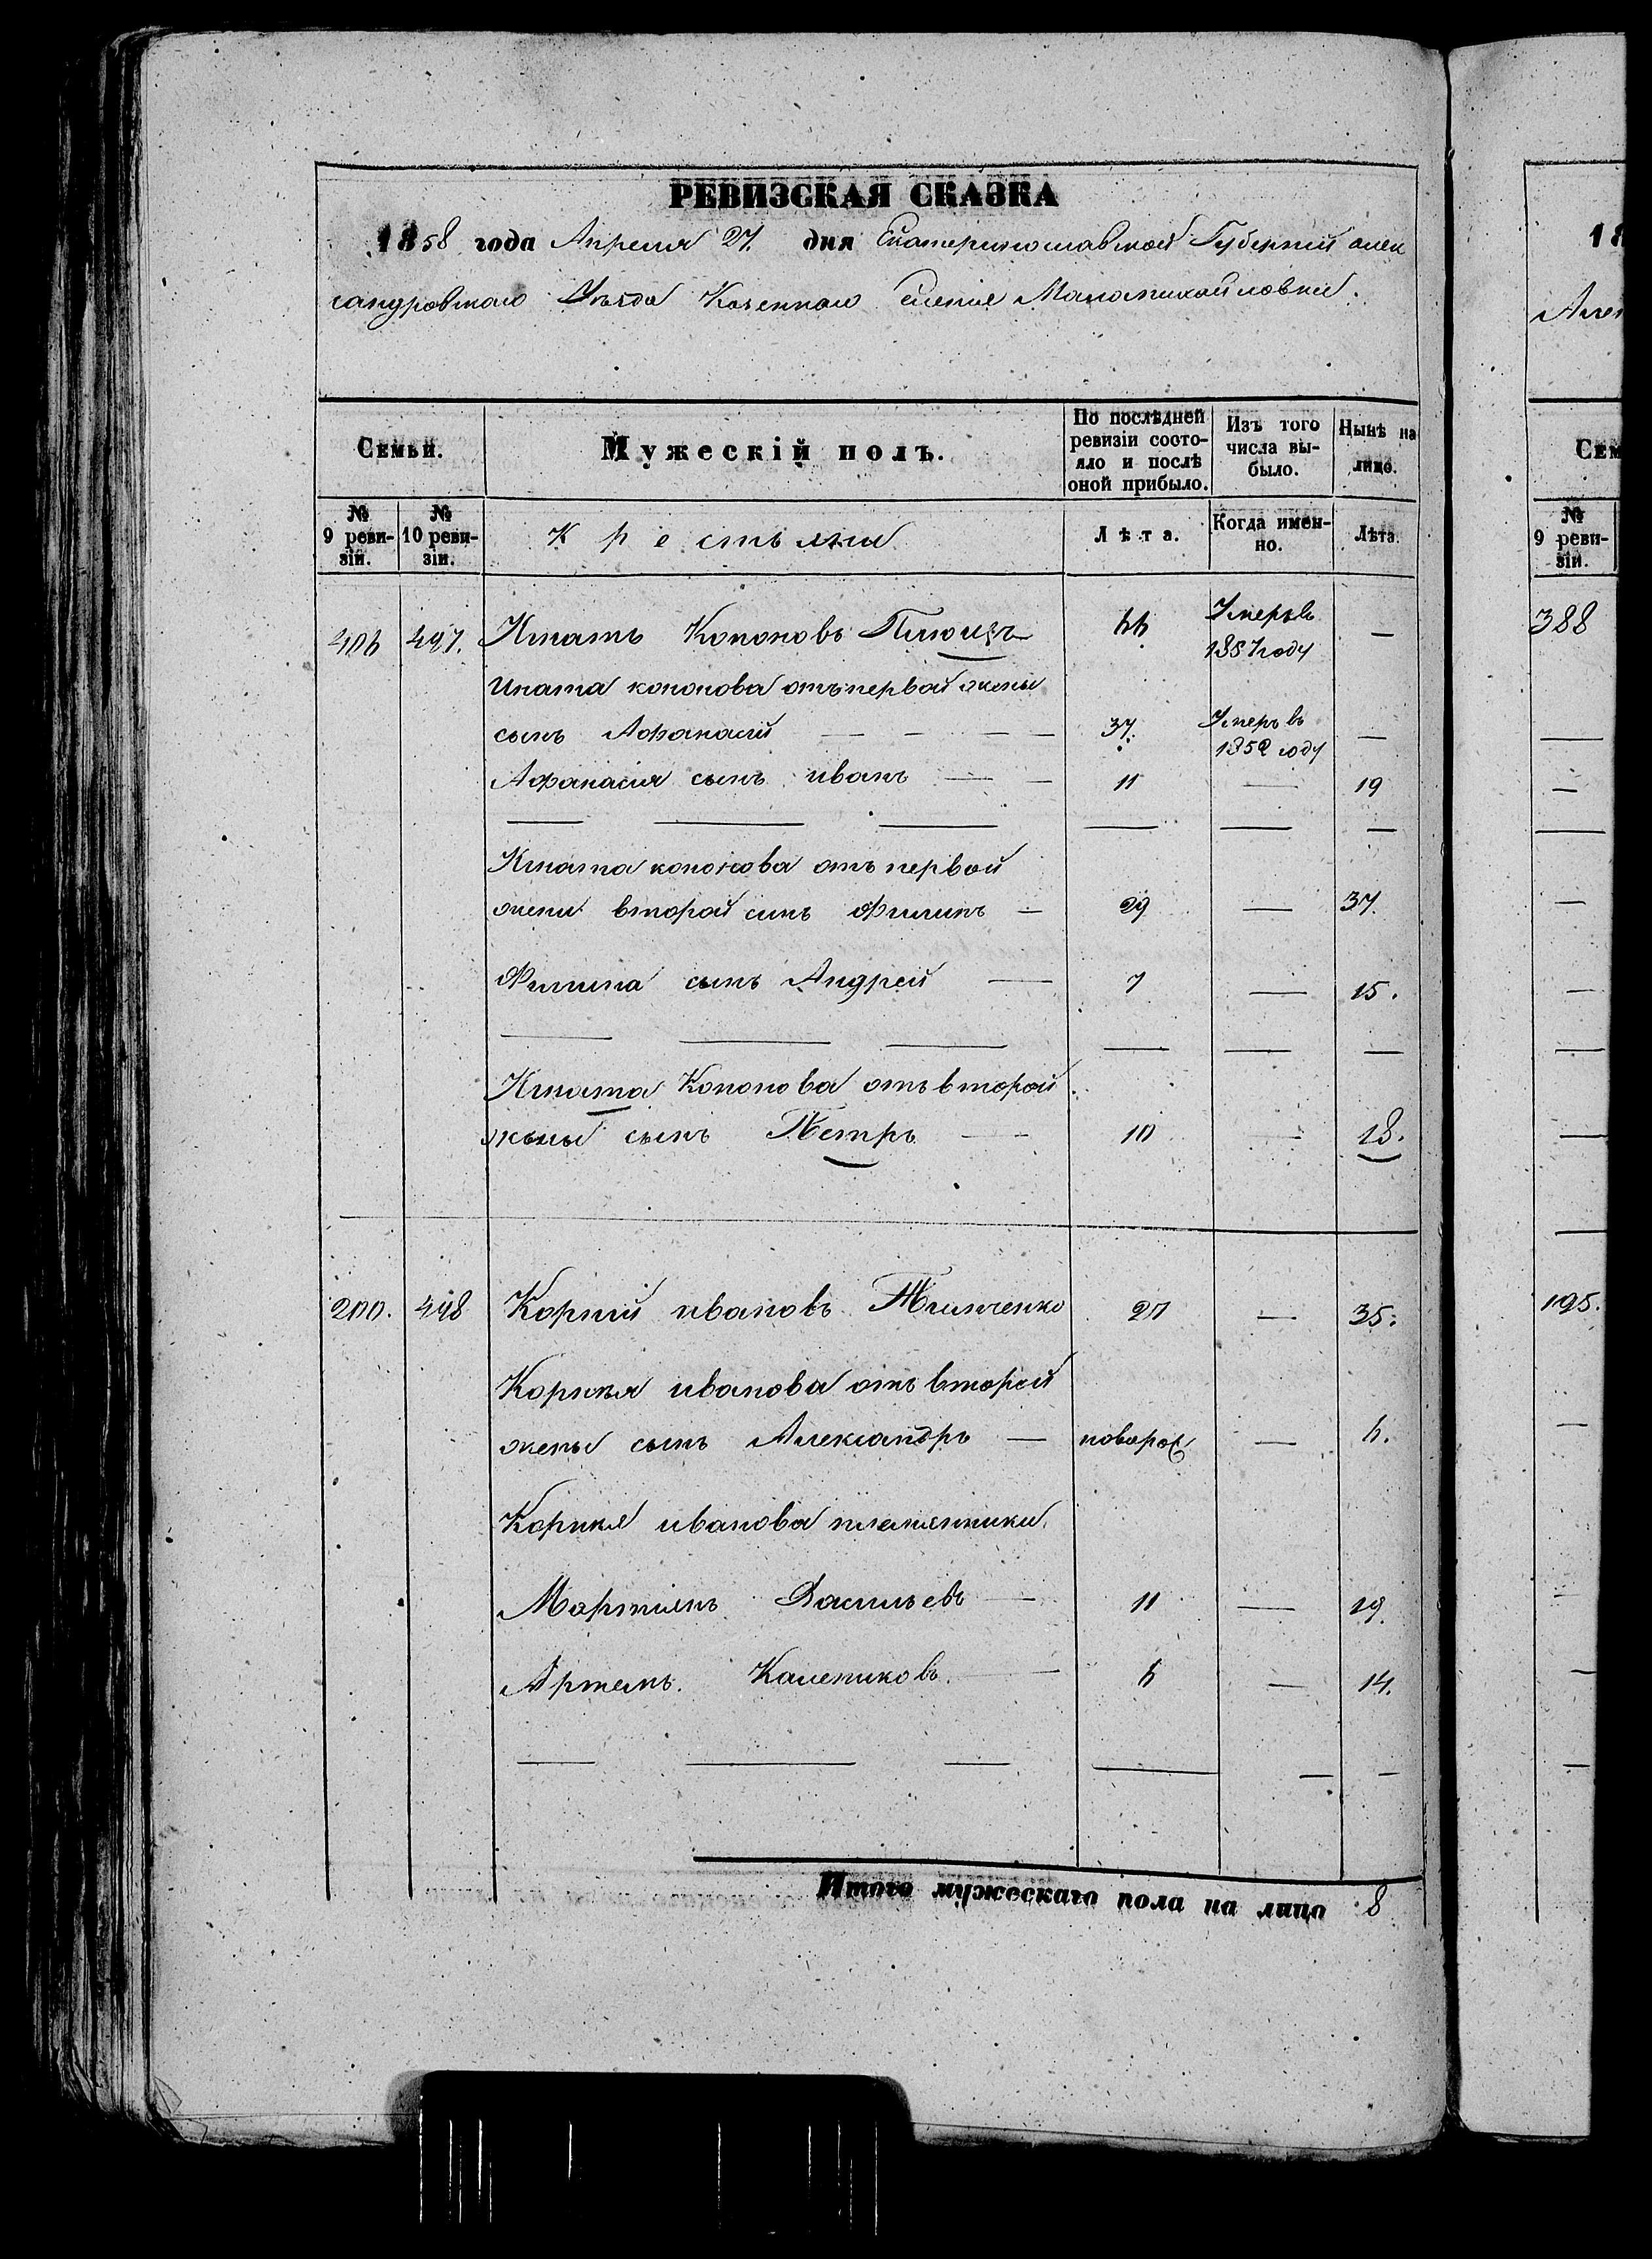 РЕВИЗСКАЯ СКАЗКА
1858 года Апреля 27 дня Екатеринославской Губерніи алек
сандровского Уѣзда Казенного селенія Маломихайловки.
Семьи.
Мужескій полъ.
По послѣдней ревизіи состояло и послѣ оной прибыло.
Изъ того числа выбыло.
Нынѣ на лицо.
№ 9 ревизіи.
№ 10 ревизіи.
Крестьяни
Лѣта.
Когда именно.
Лѣта.
406 497. Ипатъ Кононовъ 66 Умеръ въ 1857 году —
Ипата кононова отъ первой жены
сынъ Афанасій — — — — 37. Умеръ въ 1852 году —
Афанасія сынъ иванъ — — 11 — 19
Ипата кононова отъ первой
жени второй синъ Филипъ — 29 — 37.
Филипа сынъ Андрей — 7 — 15.
Ипата Кононова отъ второй
жены сынъ Петръ — 10 — 18.
200. 498 Корній ивановъ Тимченко 27 — 35.
Корнія иванова отъ второй
жены сынъ Александръ — новорож — 6.
Корнія иванова племянники.
Мартинъ Васильевъ — 11 — 19.
Артемъ. Калениковъ. — 6 — 14.
Итого мужескаго пола на лицо 8
18
Алек
Сем
№ 9 ревизіи.
388
195.